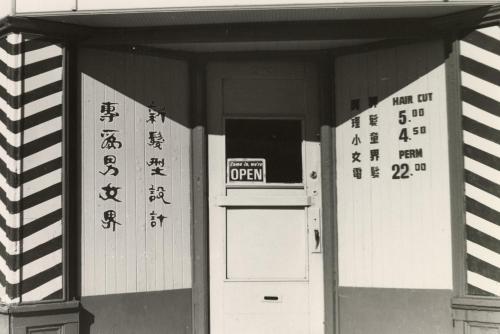 新髮型設計
專為男女界
Come in, we're
OPEN
男界
理髮
小童
女界
電髮
HAIR CUT
5.00
4.50
PERM
22.00